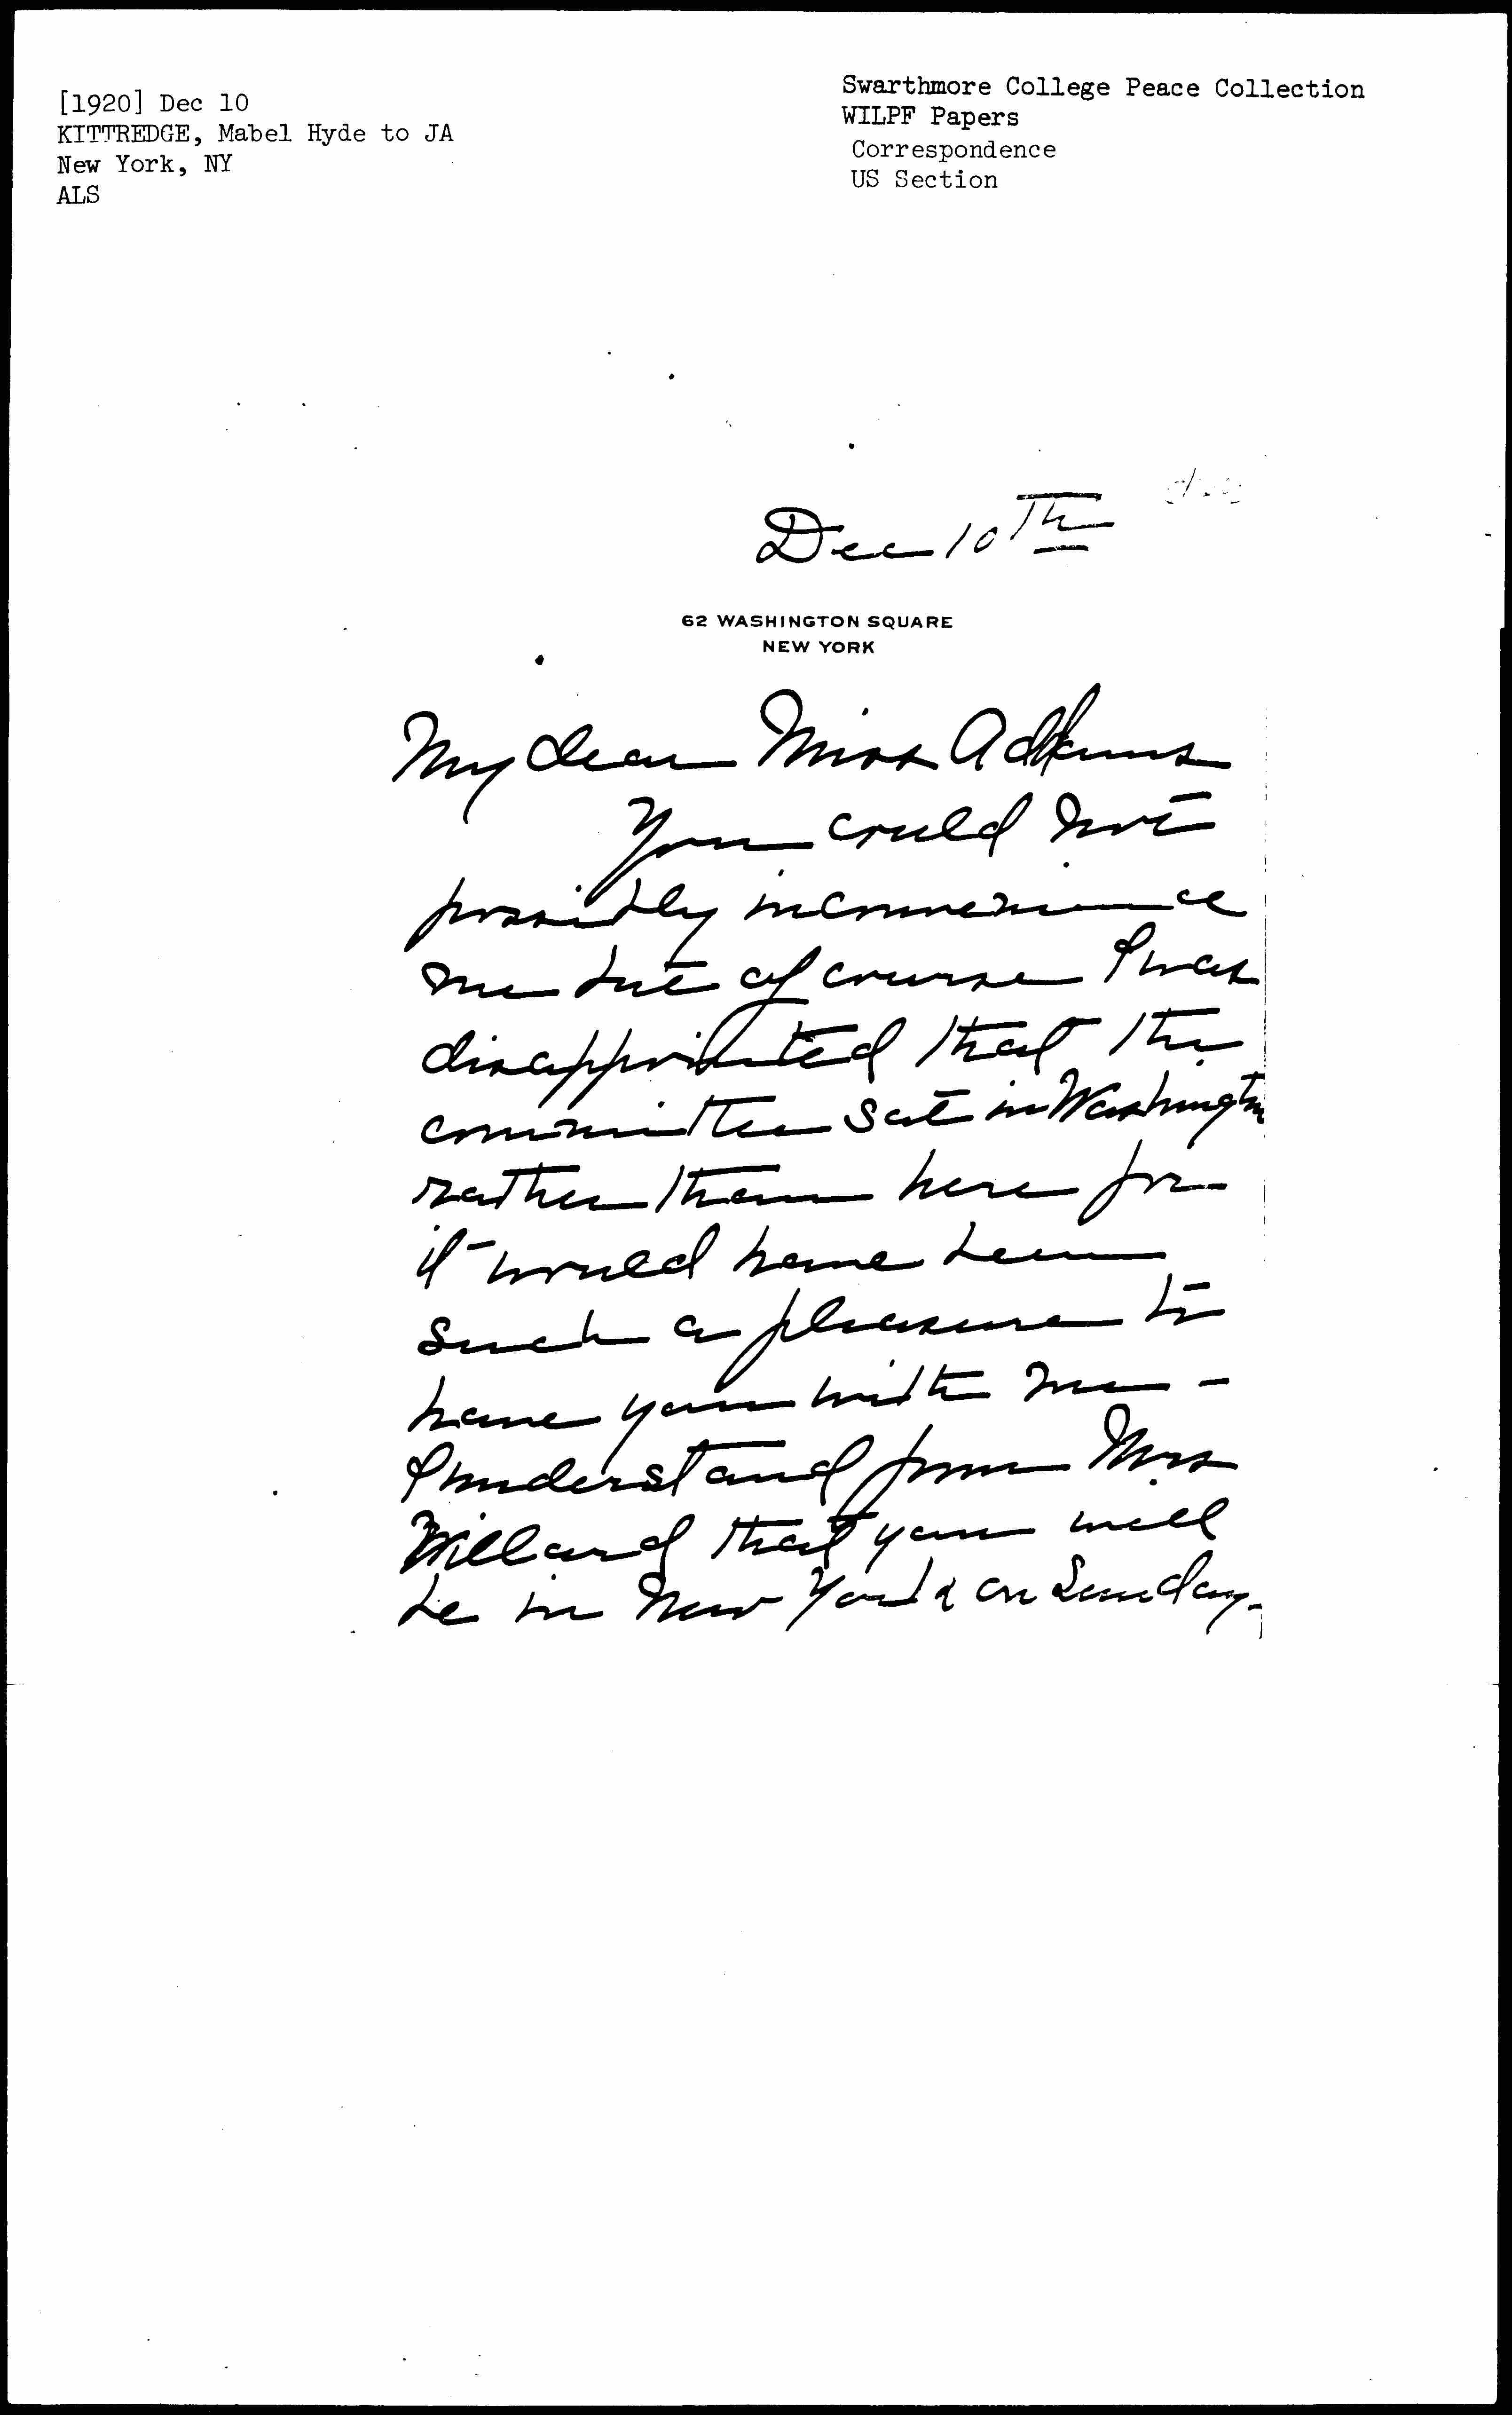 [1920] Dec 10
KITTREDGE, Mabel Hyde to JA
New York, NY
ALS
Swarthmore College Peace Collection
WILPF Papers
Correspondence
US Section
Dec 10th
62 WASHINGTON SQUARE
NEW YORK
My dear Miss Addams
You could not
possibly inconvenience
me but of course I was
disappointed that the
committee sat in Washington
rather than here for
it would have been
such a pleasure to
have you with me -
I understand from Mrs
Villard that you will
be in New York on Sunday.